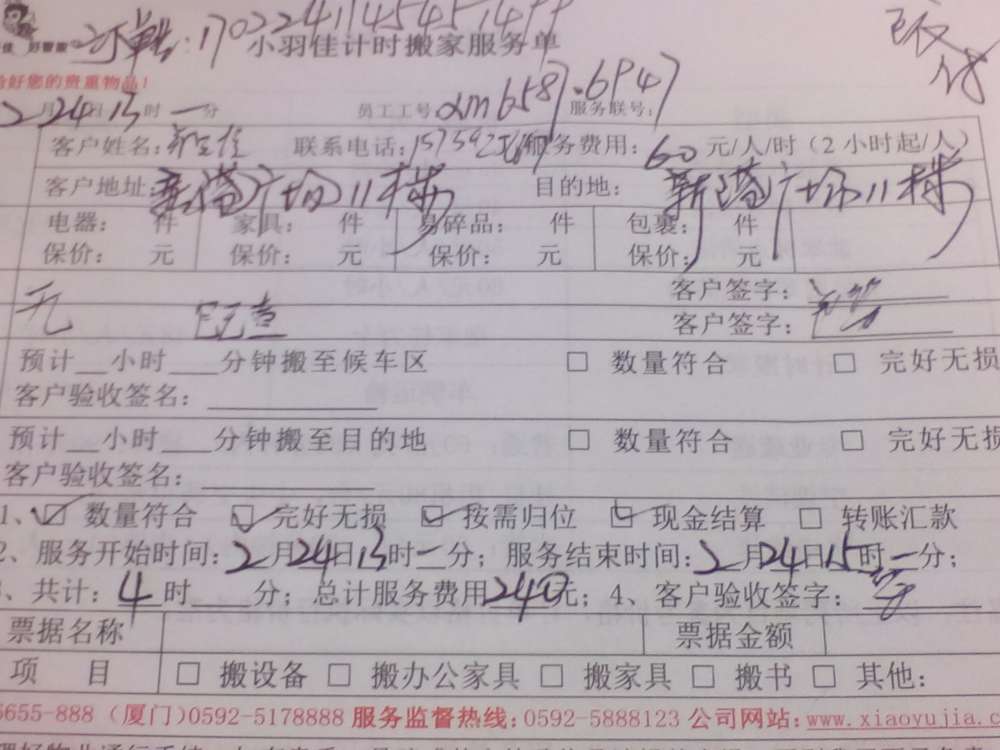 订单:17022411454571499
小羽佳计时搬家服务单
现付
好您的贵重物品!
2月24日13时一分 员工工号 服务联号:
客户姓名: 联系电话: 服务费用:60元/人/时(2小时起/人)
客户地址: 广场11栋 目的地: 广场11栋
电器: 件 家具: 件 易碎品: 件 包裹: 件
保价: 元 保价: 元 保价: 元 保价: 元
客户签字:
无 已完意 客户签字:
预计__小时___分钟搬至候车区 □ 数量符合 □ 完好无损
客户验收签名:
预计__小时___分钟搬至目的地 □ 数量符合 □ 完好无损
客户验收签名:
1、☑ 数量符合 ☑ 完好无损 ☑ 按需归位 ☑ 现金结算 □ 转账汇款
2、服务开始时间:2月24日13时一分;服务结束时间:2月24日15时一分;
3、共计:4时___分;总计服务费用240元;4、客户验收签字:
票据名称 票据金额
项 目 □ 搬设备 □ 搬办公家具 □ 搬家具 □ 搬书 □ 其他:
5655-888 (厦门)0592-5178888 服务监督热线:0592-5888123 公司网站:www.xiaoyujia.c